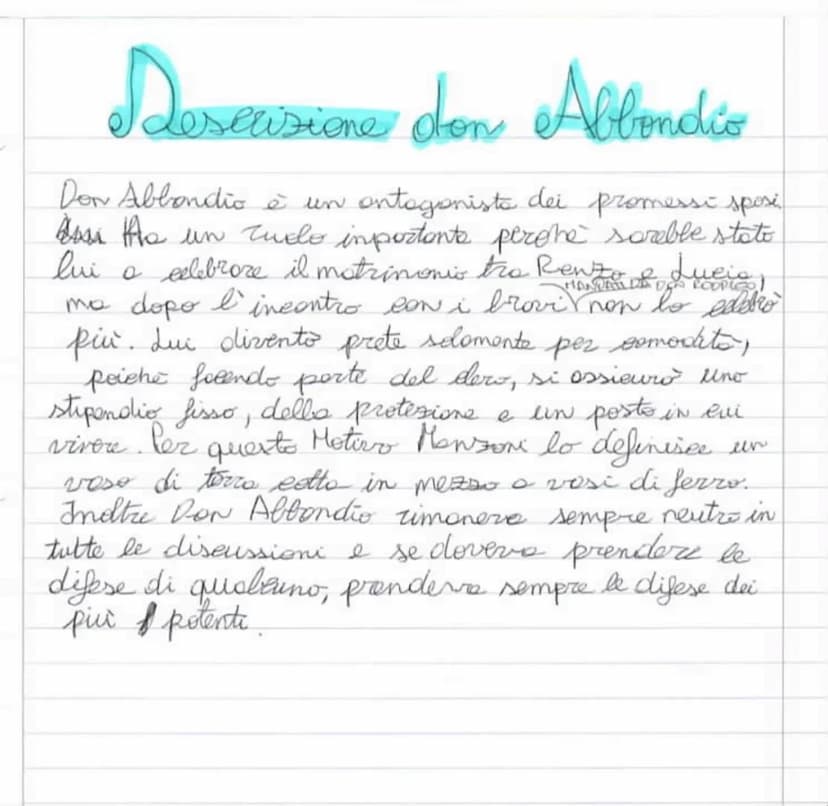 Descrizione don Abbondio
Don Abbondio è un antagonista dei promessi sposi
Ha un ruolo inportante perché sarebbe stato
lui a celebrare il matrimonio tra Renzo e Lucia,
MANDATI DA DON RODRIGO
ma dopo l'incontro con i bravi non lo celebrò
più. Lui diventò prete solamente per comodità,
poiché facendo parte del clero, si assicurò uno
stipendio fisso, della protezione e un posto in cui
vivere. Per questo Motivo Manzoni lo definisce un
vaso di terra cotta in mezzo a vasi di ferro.
Inoltre Don Abbondio rimaneva sempre neutro in
tutte le discussioni e se doveva prendere le
difese di qualcuno, prendeva sempre le difese dei
più potenti.